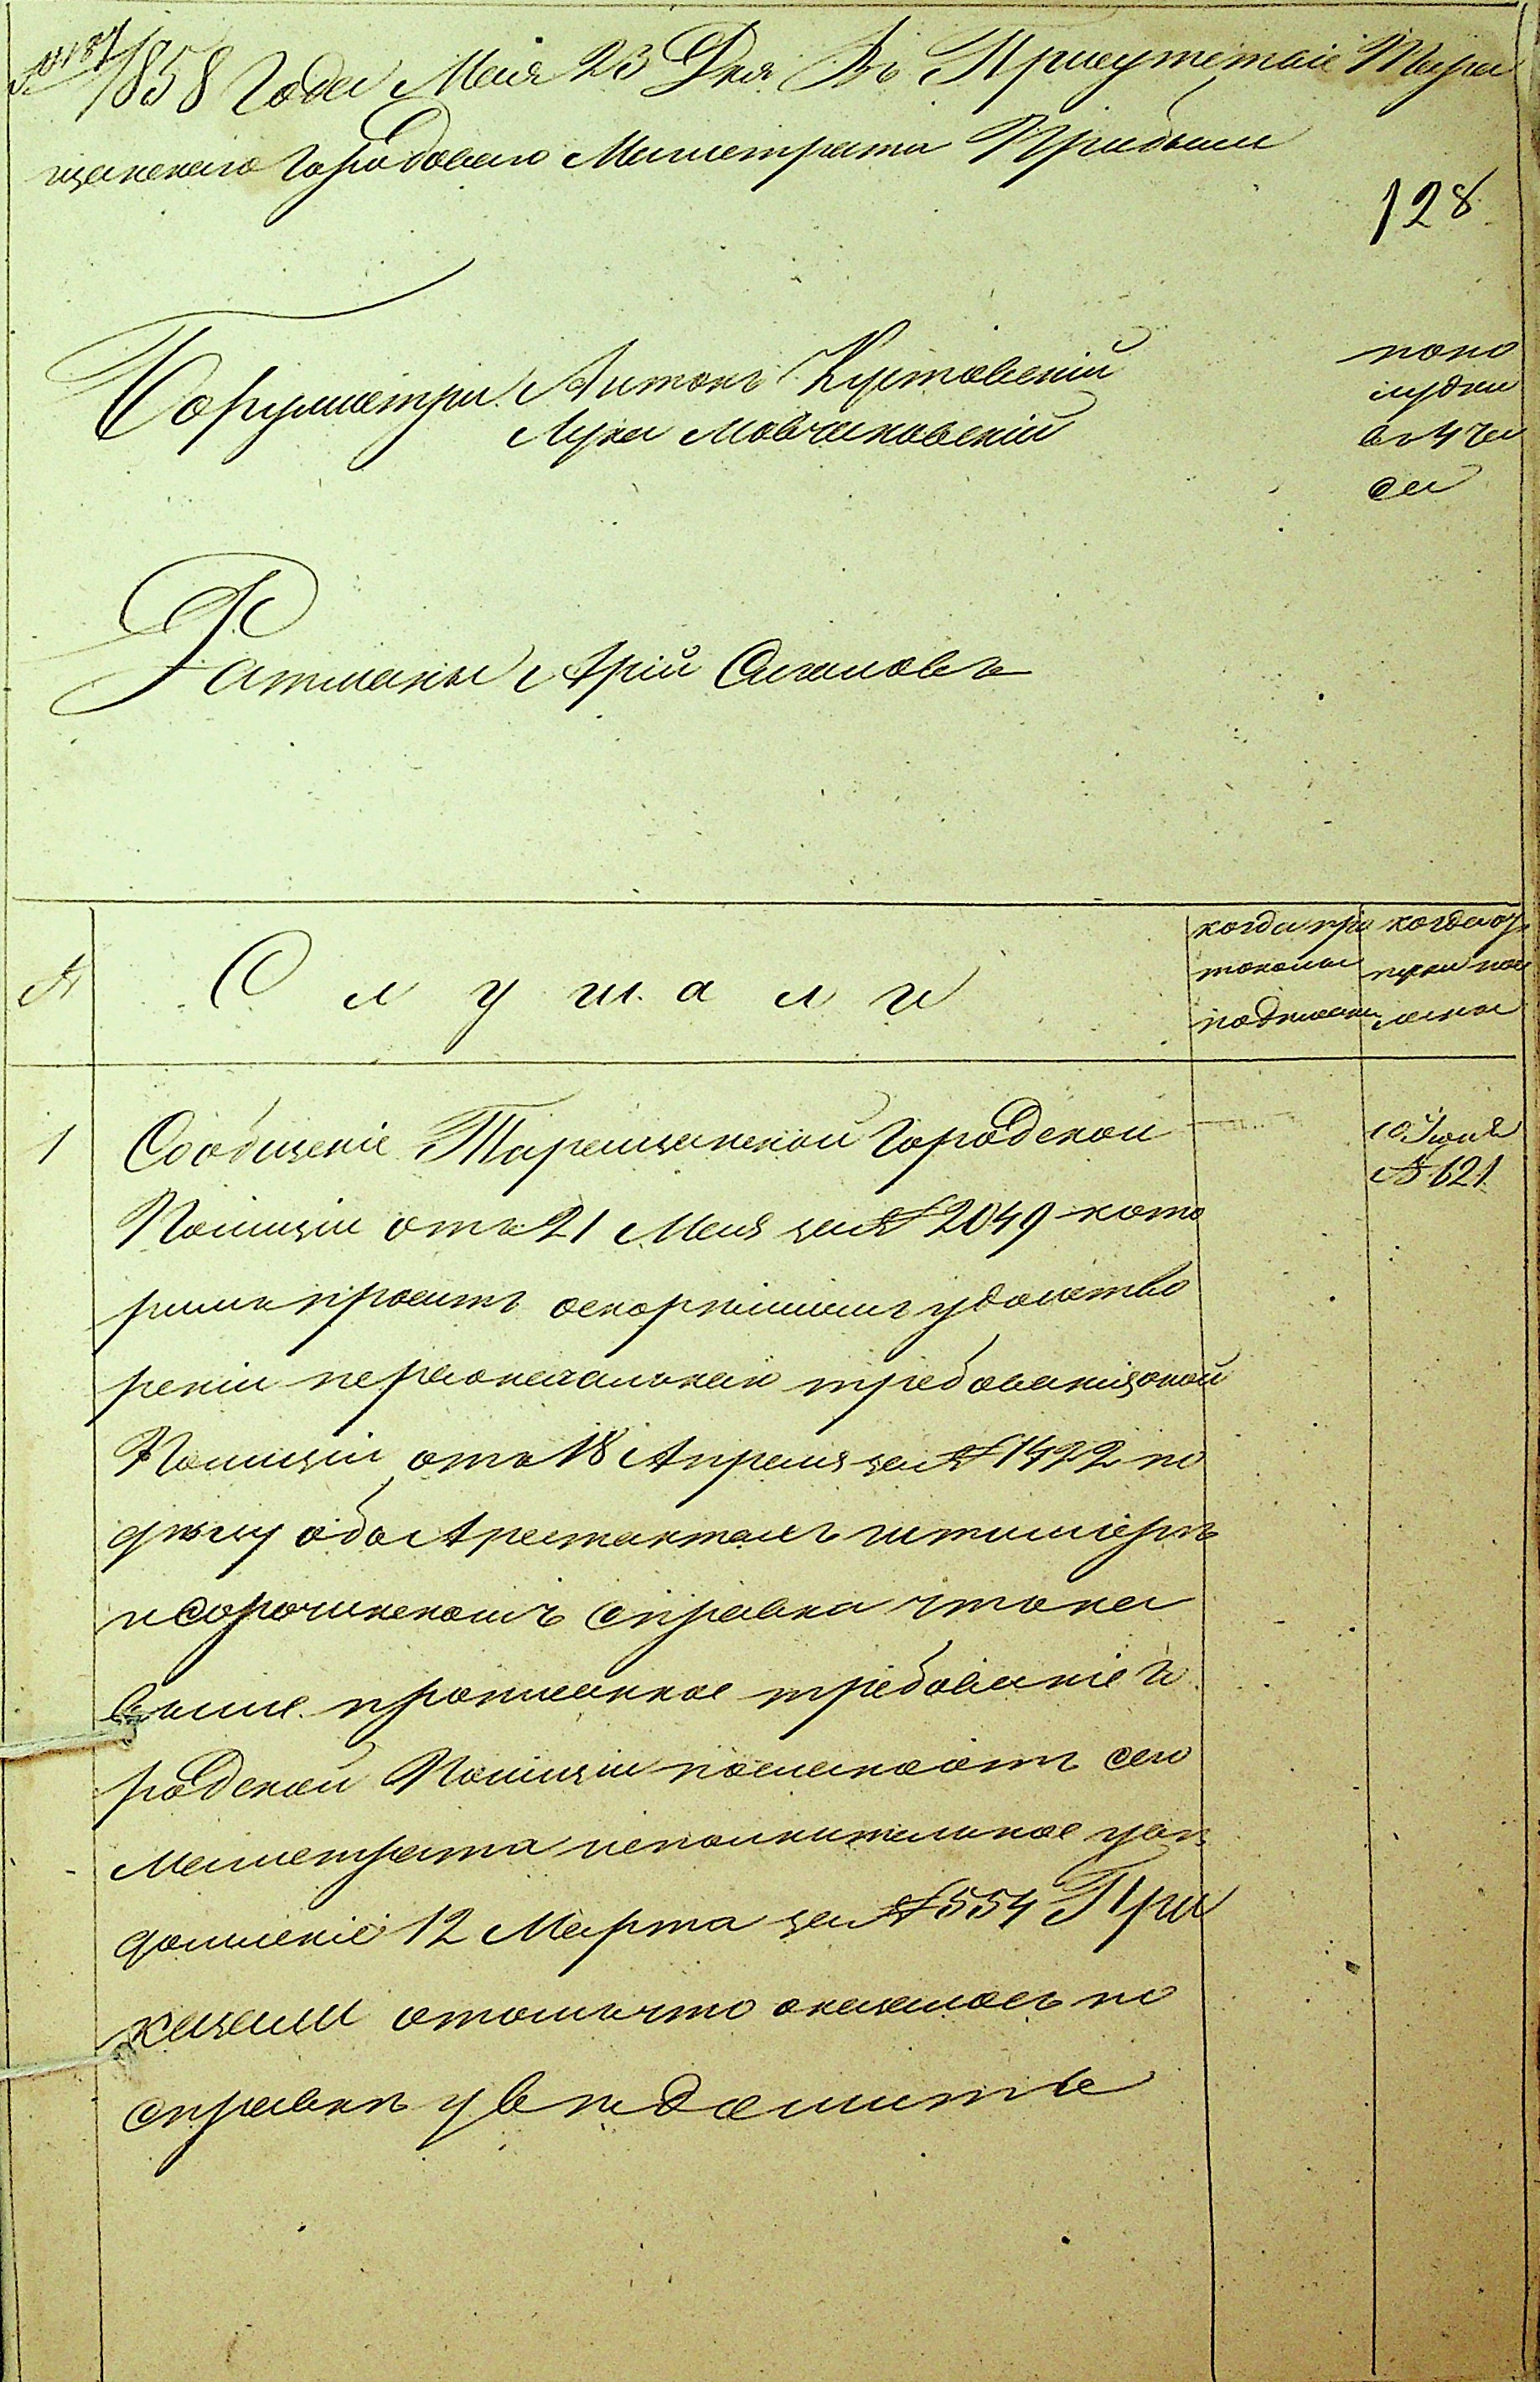 № 187
1858 Года Маія 23 Дня Въ Присутствіе Тара
щанскаго Городоваго Магистрата Прибыли
128
Боргумистри Антонъ Кустовскій
Лука Мовчановскій
попо
лудни
въ 4 ча
са
Ратманы Арій Сигаловъ
№
Слушали
когда про
токолы
подписаны
когда от
пуски пос
ланы
1
Сообщеніе Таращанской Городской
Полиціи отъ 21 Маія за № 2049 кото
рымъ проситъ оскорѣйшемъ удовлетво
реніи первоначальнаго требованія оной
Полиціи отъ 18 Апреля за № 1422 по
дѣлу объ Арестантахъ
и Сорочинскомъ Справка что на
выше прописанное требованіе Го
родской Полиціи послано отъ сего
Магистрата исполнительное увѣ
домленіе 12 Марта за № 554 При
казали отомъ что оказалось по
справкѣ увѣдомить
10 Іюня
№ 621